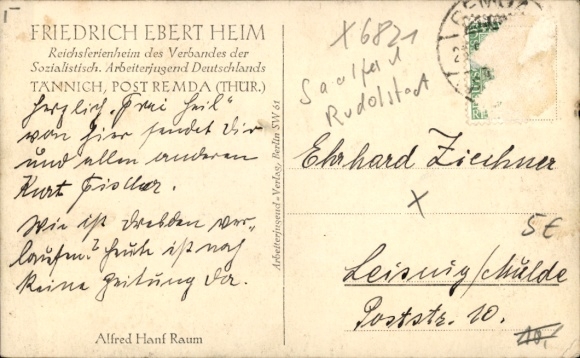 FRIEDRICH EBERT HEIM
Reichsferienheim des Verbandes der
Sozialistisch. Arbeiterjugend Deutschlands
TÄNNICH, POST REMDA (THÜR.)
Herzlich „Frei Heil“
von hier sendet Dir
und allen anderen
Kurt Fischer.
Wie ist Dresden ver-
laufen? Heute ist noch
keine Zeitung da.
Alfred Hanf Raum
Arbeiterjugend-Verlag, Berlin SW 61
X 6821
Saalfeld
Rudolstadt
REMDA
Ehrhard Ziechner
X
5€
Leisnig/Mulde
Poststr. 10.
10,-